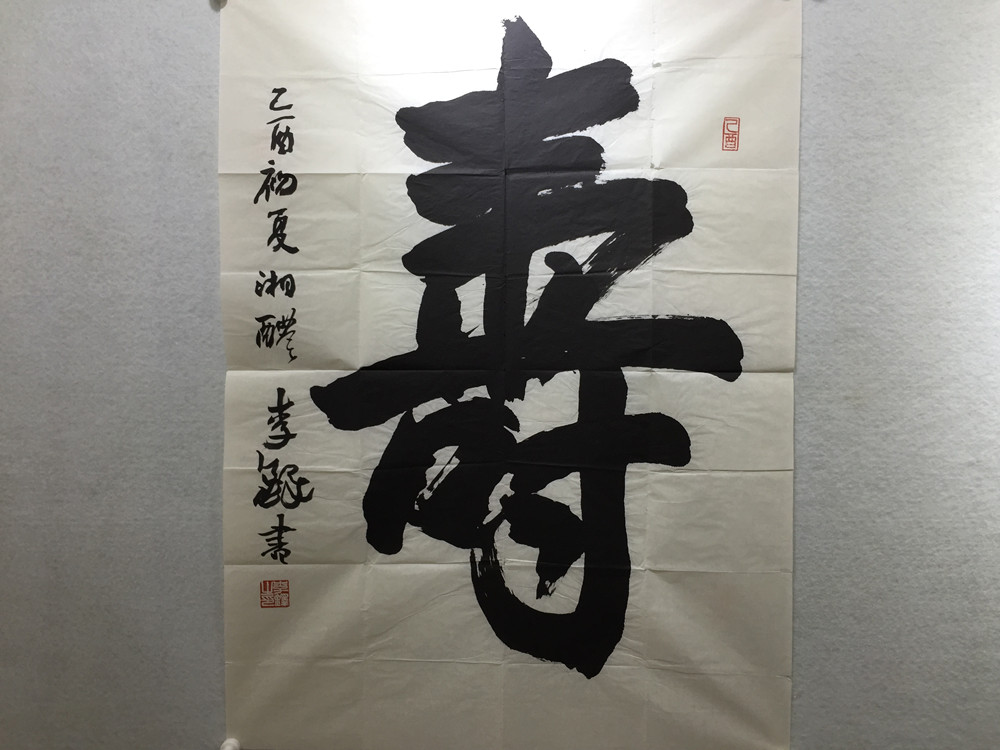 壽
乙酉
乙酉初夏湘醴李鐸書